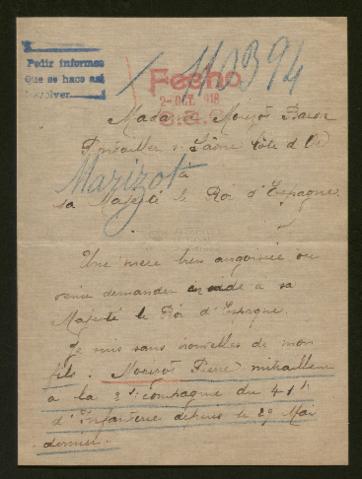 Pedir informes
Que se hace así
1103394
Fecho
2-OCT. 918
Madame
Pontailler s/ Saône Côte d'Or
à
Marizot
sa Majesté le Roi d'Espagne
Une mère bien angoissée
venir demander à sa
Majesté le Roi d'Espagne.
Je suis sans nouvelles de mon
fils. Pierre mitrailleur
à la compagnie du 41e
d'Infanterie depuis le 29 Mai
dernier.